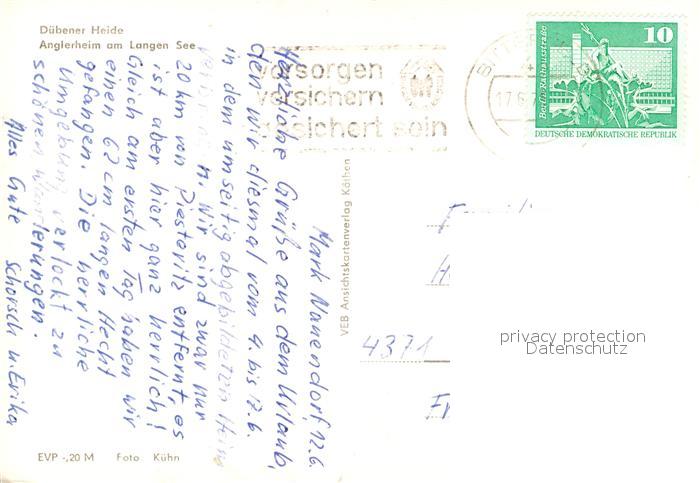 Dübener Heide
Anglerheim am Langen See
vorsorgen
versichern
sichert sein
17.6.
10
Berlin, Rathausstraße
DEUTSCHE DEMOKRATISCHE REPUBLIK
Mark Nauendorf, 12.6.
Herzliche Grüße aus dem Urlaub,
den wir diesmal vom 4. bis 17.6.
in dem umseitig abgebildeten Heim
verbringen. Wir sind zwar nur
20 km von Piesteritz entfernt, es
ist aber hier ganz herrlich!
Gleich am ersten Tag haben wir
einen 62 cm langen Hecht
gefangen. Die herrliche
Umgebung verlockt zu
schönen Wanderungen.
Alles Gute Schorsch u. Erika
VEB Ansichtskartenverlag Köthen
4371
privacy protection
Datenschutz
EVP -,20 M Foto Kühn